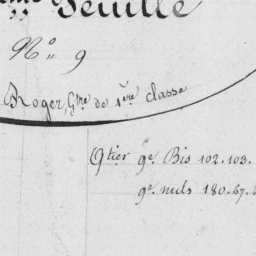 Feuille
N° 9
Roger, Gre de 1ère classe
Qtier 9e Bis 102. 103.
9e nuls 180. 67.